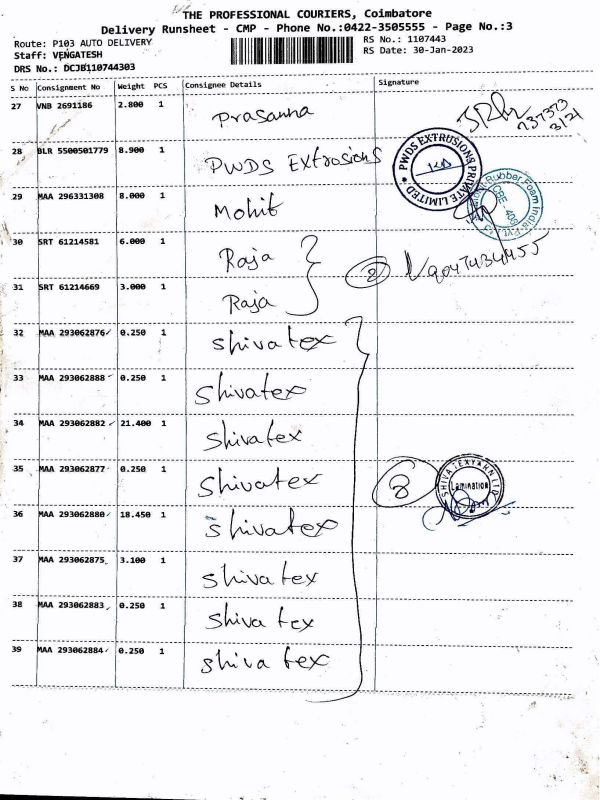 THE PROFESSIONAL COURIERS, Coimbatore
Delivery Runsheet - CMP - Phone No.:0422-3505555 - Page No.:3
Route: P103 AUTO DELIVERY
RS No.: 1107443
Staff: VENGATESH
RS Date: 30-Jan-2023
DRS No.: DCJB110744303
S No Consignment No Weight PCS Consignee Details Signature
27 VNB 2691186 2.800 1 Prasanna
737373
28 BLR 5500501779 8.900 1 PWDS Extrosions
PWDS EXTRUSIONS PRIVATE LIMITED
29 MAA 296331308 8.000 1 Mohit
Rubber Foam India Pvt
30 SRT 61214581 6.000 1 Raja
2 9047434455
31 SRT 61214669 3.000 1 Raja
32 MAA 293062876 0.250 1 Shivatex
33 MAA 293062888 0.250 1 Shivatex
34 MAA 293062882 21.400 1 Shivatex
35 MAA 293062877 0.250 1 Shivatex
8 SHIVA TEXYARN LTD
Lamination
36 MAA 293062880 18.450 1 Shivatex
37 MAA 293062875 3.100 1 Shiva tex
38 MAA 293062883 0.250 1 Shiva tex
39 MAA 293062884 0.250 1 Shiva tex